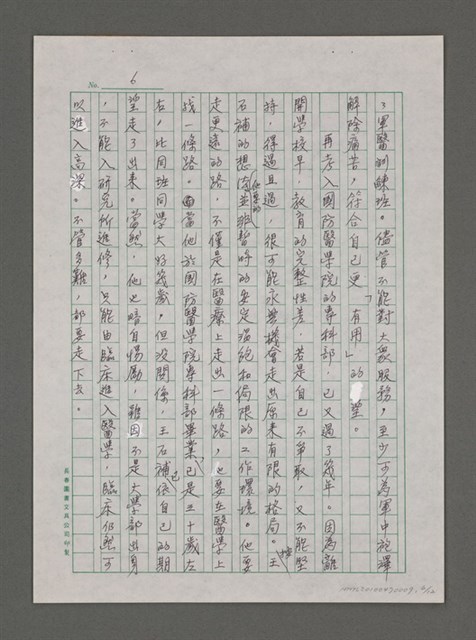 No. 6
了軍醫訓練班。儘管不能對大眾服務,至少可為軍中袍澤
解除痛苦,符合自己更「有用」的 望。
再考入國防醫學院的專科部,已又過了幾年。因為離
開學校早,教育的完整性差,若是自己不爭取,又不能堅
持,得過且過,很可能永無機會走出原來有限的格局。王
石補的想法並非暫時的安定溫飽和侷限的工作環境。他要
走更遠的路,不僅是在醫療上走出一條路,也要在醫學上
找一條路。當他於國防醫學院專科部畢業,已是三十歲左
右,比同班同學大好幾歲,但沒關係,王石補已依自己的期
望走了出來。當然,他也暗自惕勵,雖因不是大學部出身
,不能入研究所進修,只能由臨床進入醫學,臨床仍然可
以進入高深。不管多難,都要走下去。
長春圖書文具公司印製